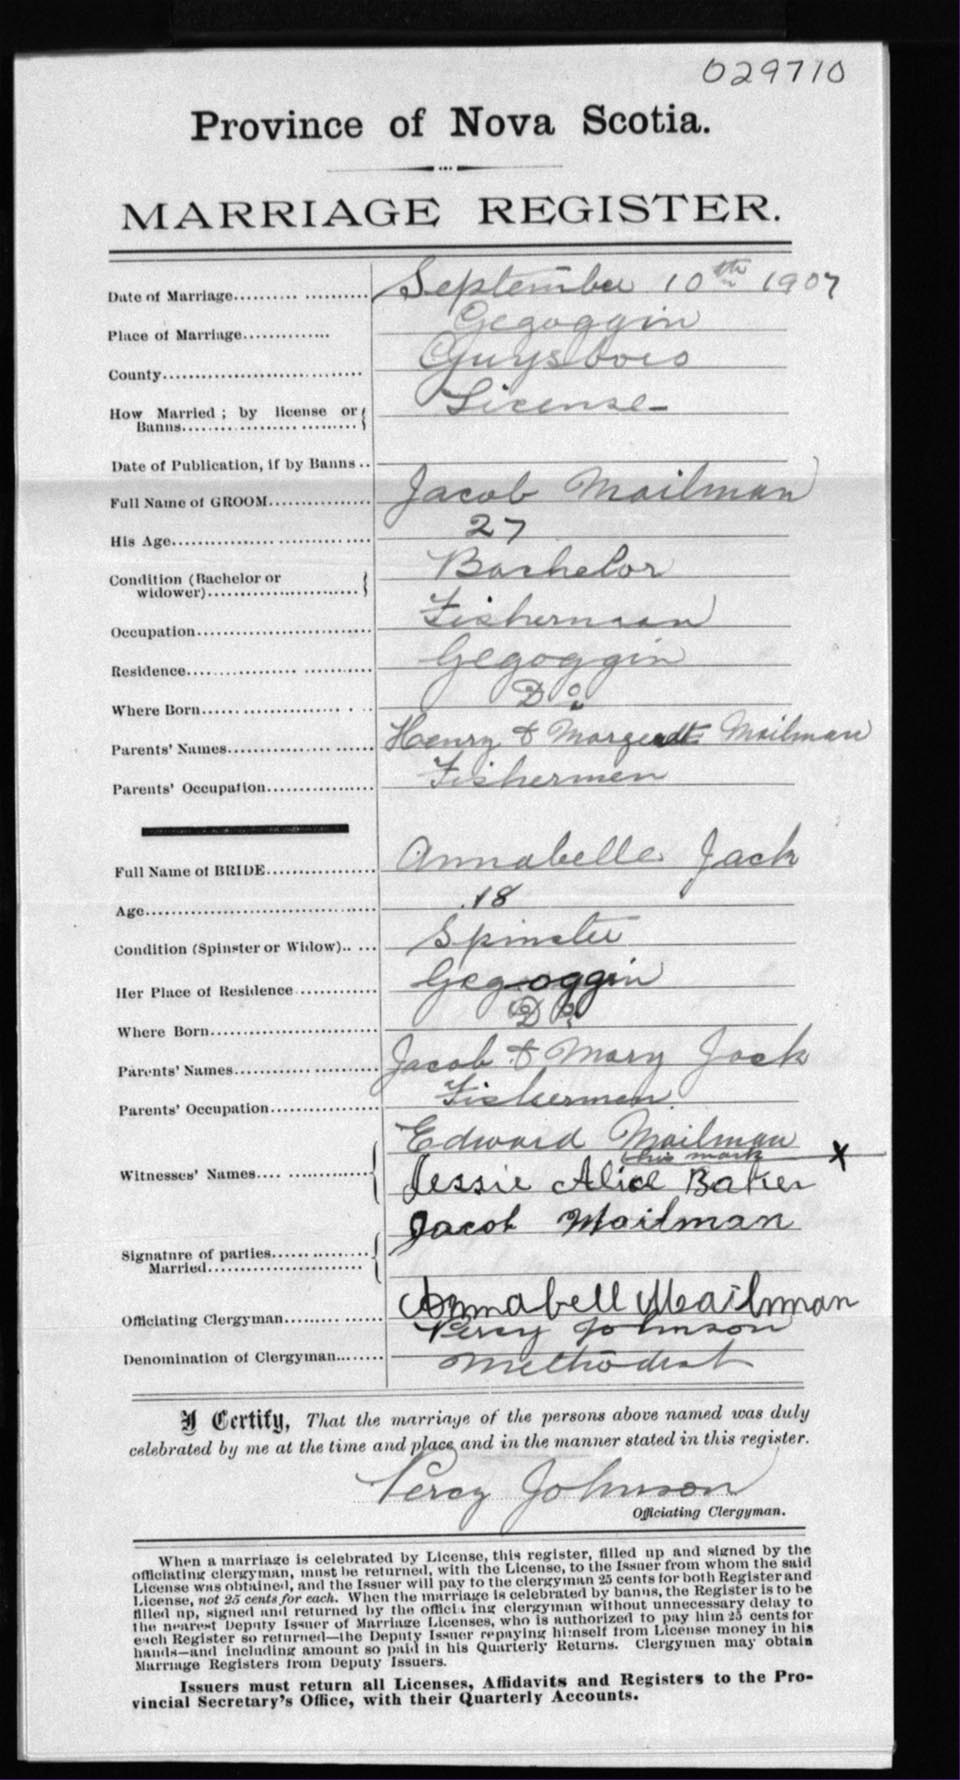 029710
Province of Nova Scotia.
MARRIAGE REGISTER.
Date of Marriage.......... September 10th 1907
Place of Marriage............. Gegoggin
County.............................. Guysboro
How Married ; by license or
Banns.............................. License
Date of Publication, if by Banns ..
Full Name of GROOM............... Jacob Mailman
His Age.............................. 27
Condition (Bachelor or
widower)......................... Bachelor
Occupation.......................... Fisherman
Residence........................... Gegoggin
Where Born......................... Do
Parents' Names.................... Henry & Margerett Mailman
Parents' Occupation............... Fishermen
Full Name of BRIDE............... Annabelle Jack
Age.................................... 18
Condition (Spinster or Widow).. ... Spinster
Her Place of Residence ........... Gegoggin
Where Born........................ Do
Parents' Names.................... Jacob & Mary Jack
Parents' Occupation............... Fishermen
Edward Mailman
his mark X
Witnesses' Names.... ............. Jessie Alice Baker
Jacob Mailman
Signature of parties...............
Married.......................
Annabell Mailman
Officiating Clergyman............. Percy Johnson
Denomination of Clergyman........ Methodist
I Certify, That the marriage of the persons above named was duly
celebrated by me at the time and place, and in the manner stated in this register.
Percy Johnson
Officiating Clergyman.
When a marriage is celebrated by License, this register, filled up and signed by the
officiating clergyman, must be returned, with the License, to the Issuer from whom the said
License was obtained, and the Issuer will pay to the clergyman 25 cents for both Register and
License, not 25 cents for each. When the marriage is celebrated by banns, the Register is to be
filled up, signed and returned by the officia ing clergyman without unnecessary delay to
the nearest Deputy Issuer of Marriage Licenses, who is authorized to pay him 25 cents for
each Register so returned—the Deputy Issuer repaying himself from License money in his
hands—and including amount so paid in his Quarterly Returns. Clergymen may obtain
Marriage Registers from Deputy Issuers.
Issuers must return all Licenses, Affidavits and Registers to the Pro-
vincial Secretary's Office, with their Quarterly Accounts.